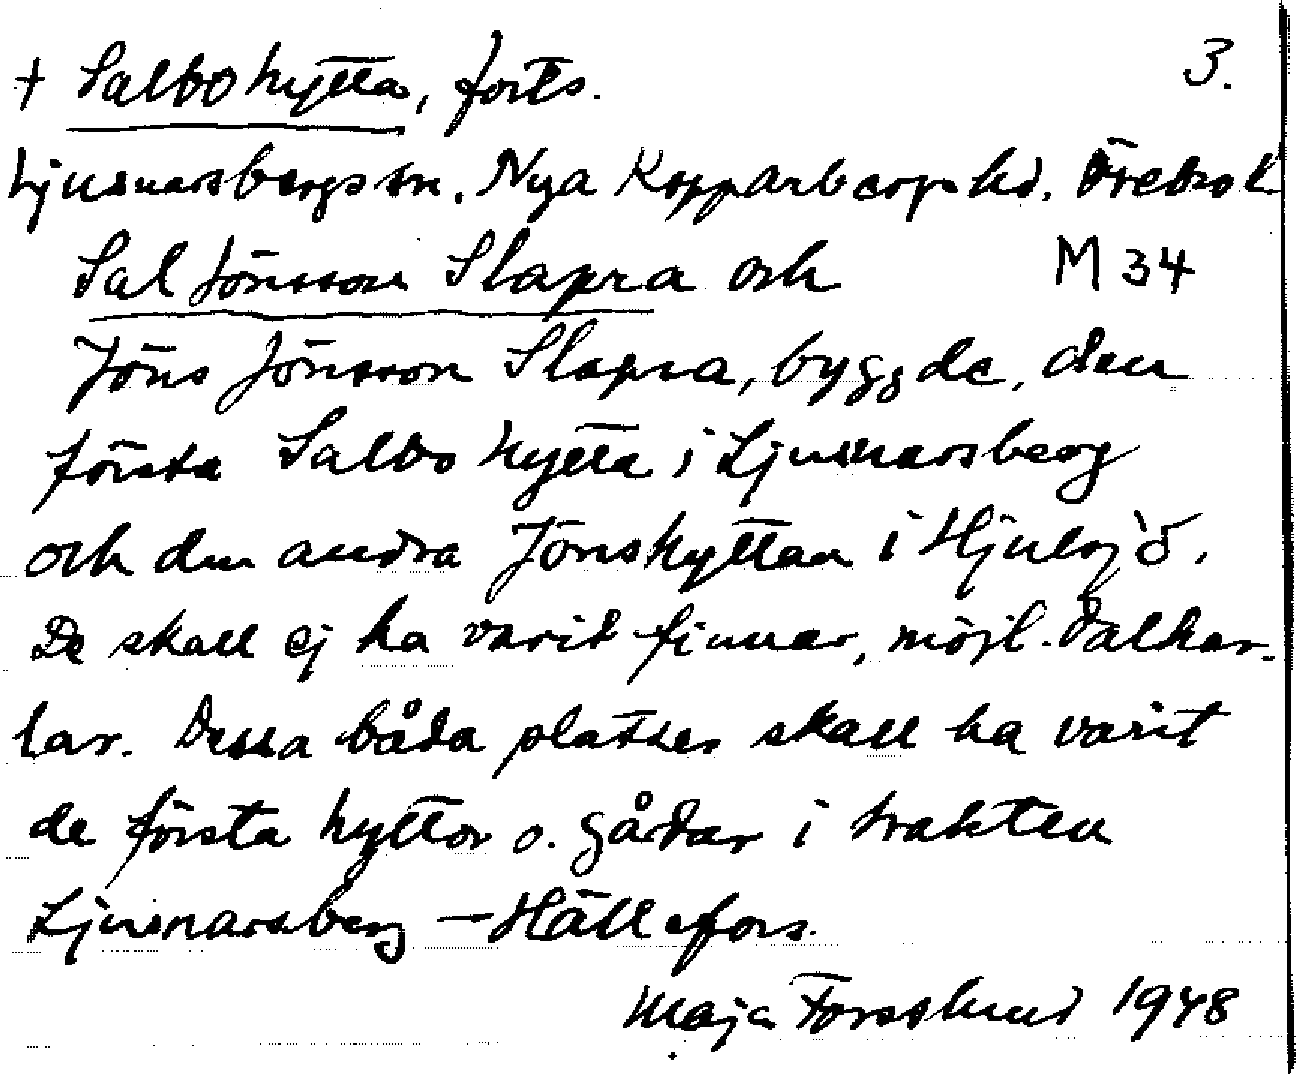 + Salbohytta, forts. 3.
Ljusnarsbergs sn. Nya Kopparbergs hd. Örebro l
Sal Jönsson Slapra och M 34
Jöns Jönsson Slapra, byggde, den
första Salbo hytta i Ljusnarsberg
och den andra Jönshyttan i Hjulsjö.
De skall ej ha varit finnar, möjl. dalkar-
lar. Dessa båda platser skall ha varit
de första hyttor o. gårdar i trakten
Ljusnarsberg – Hällefors.
Maja Forsslund 1948